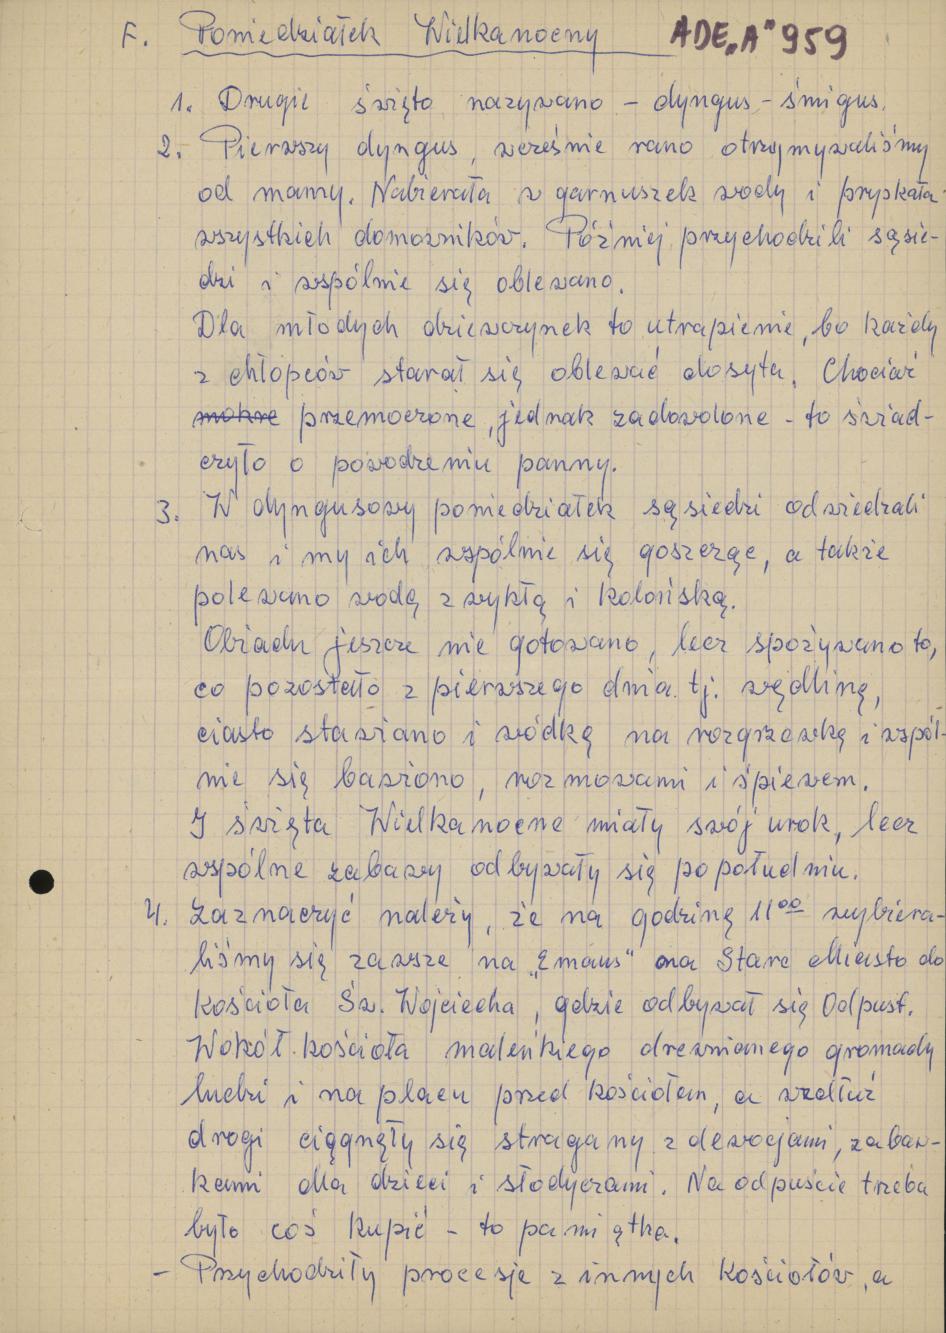 F. Poniedziałek Wielkanocny ADE„A" 959
1. Drugie święto nazywano - dyngus - śmigus.
2. Pierwszy dyngus, wcześnie rano otrzymywaliśmy
od mamy. Nabierała w garnuszek wody i pryskała
wszystkich domowników. Później przychodzili sąsie-
dzi i wspólnie się oblewano.
Dla młodych dziewczynek to utrapienie, bo każdy
z chłopców starał się oblewać dosyta. Chociaż
mokre przemoczone, jednak zadowolone - to świad-
czyło o powodzeniu panny.
3. W dyngusowy poniedziałek sąsiedzi odwiedzali
nas i my ich wspólnie się goszcząc, a także
polewano wodą zwykłą i kolońską.
Obiadu jeszcze nie gotowano, lecz spożywano to,
co pozostało z pierwszego dnia tj. wędlinę,
ciasto stawiano i wódkę na rozgrzewkę i wspól-
nie się bawiono, rozmowami i śpiewem.
I święta Wielkanocne miały swój urok, lecz
wspólne zabawy odbywały się po południu.
4. Zaznaczyć należy, że na godzinę 11⁰⁰ wybiera-
liśmy się zawsze na „Emaus" na Stare Miasto do
Kościoła Św. Wojciecha, gdzie odbywał się Odpust.
Wokół kościoła maleńkiego drewnianego gromady
ludzi i na placu przed kościołem, a wzdłuż
drogi ciągnęły się stragany z dewocjami, zabaw-
kami dla dzieci i słodyczami. Na odpuście trzeba
było coś kupić - to pamiątka.
- Przychodziły procesje z innych Kościołów, a